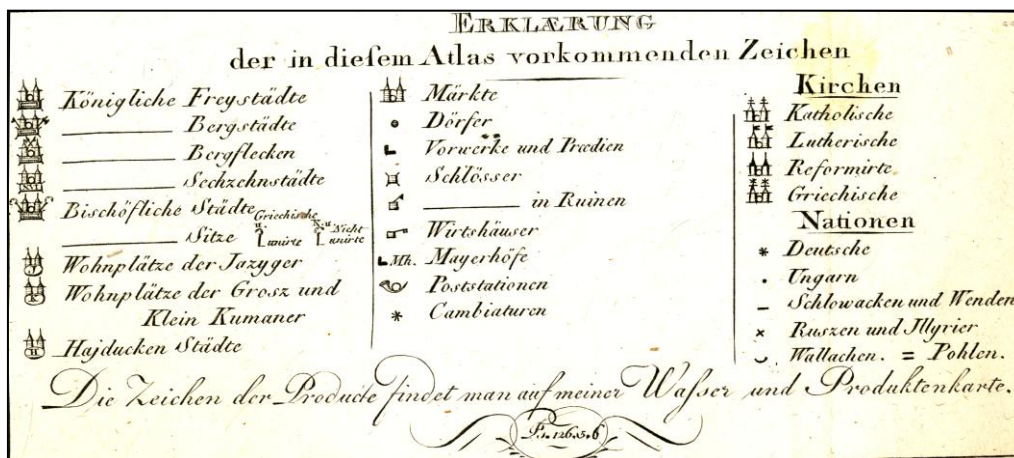 ERKLÆRUNG
der in dieſem Atlas vorkommenden Zeichen
Königliche Freystädte
Bergstädte
Bergflecken
Sechzehnstädte
Bischöfliche Städte
Sitze Griechische u. unirte u. Nicht unirte
Wohnplätze der Jazyger
Wohnplätze der Grosz und
Klein Kumaner
Hajducken Städte
Märkte
Dörfer
Vorwërke und Prædien
Schlösser
in Ruinen
Wirtshäuser
Mh. Mayerhöfe
Poststationen
Cambiaturen
Kirchen
Katholische
Lutherische
Reformirte
Griechische
Nationen
Deutsche
Ungarn
Schlowacken und Wenden
Ruszen und Jllyrier
Wallachen. = Pohlen.
Die Zeichen der Producte findet man auf meiner Waſser und Produktenkarte.